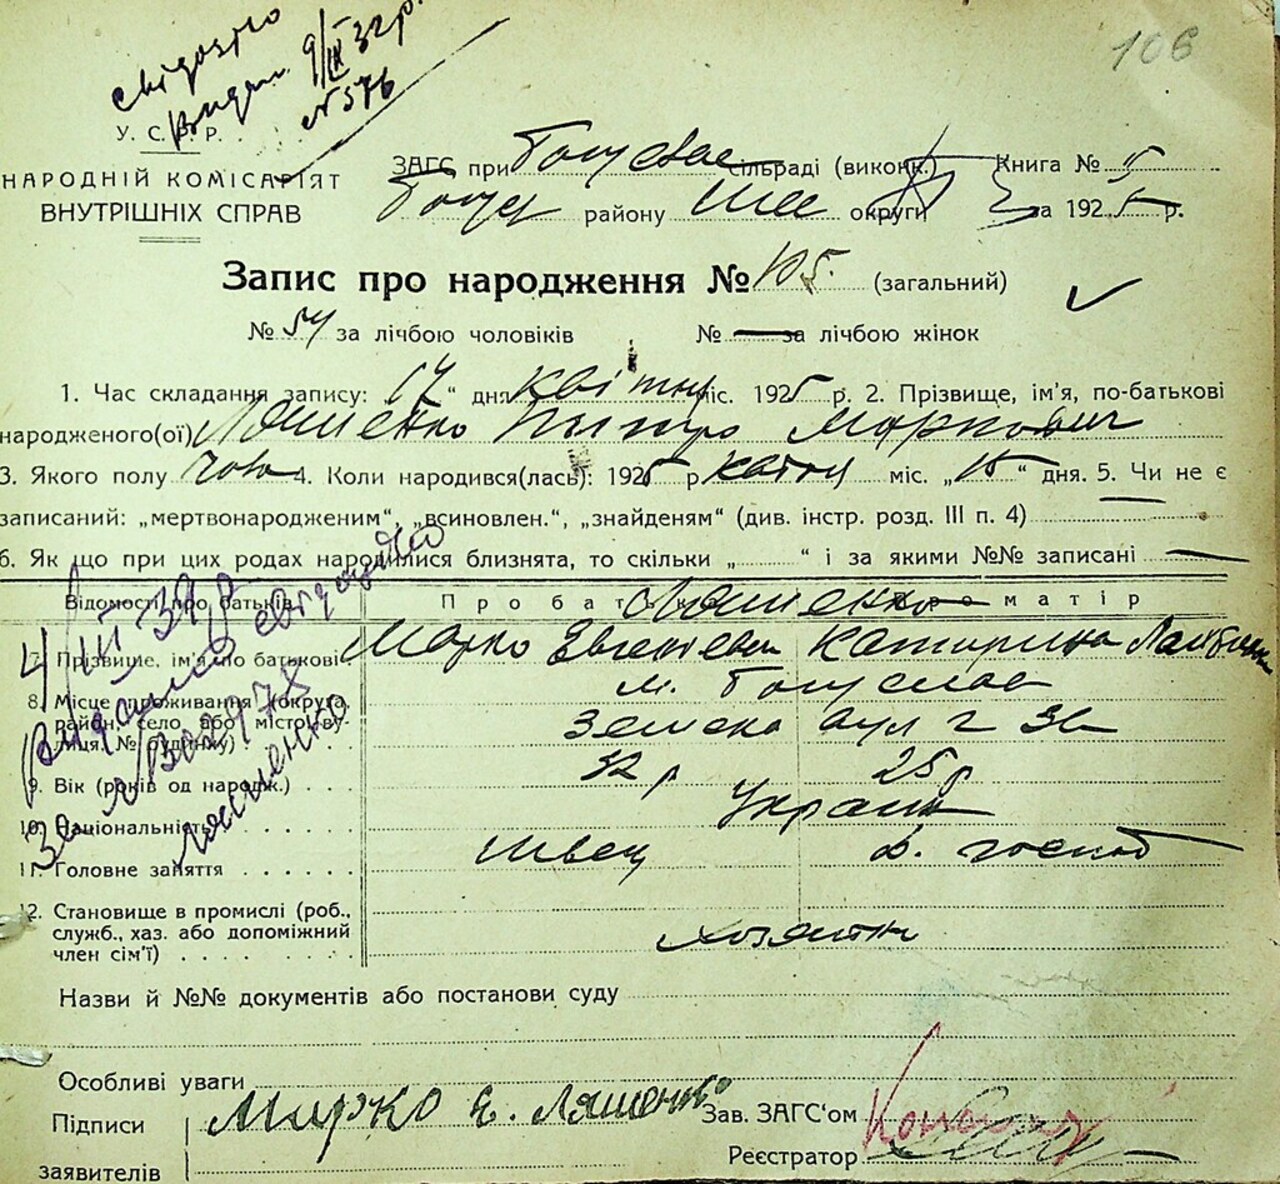 106
Свідоцтво
Видан 9/ІХ 32 р.
№ 576
У. С. Р. Р.
НАРОДНІЙ КОМІСАРІЯТ
ВНУТРІШНІХ СПРАВ
ЗАГС при сільраді (виконк.) Книга №
району округи за 192 р.
Запис про народження № 105. (загальний)
№ 54 за лічбою чоловіків № — за лічбою жінок
1. Час складання запису: 17 “ дня квітня міс. 1925 р. 2. Прізвище, ім'я, по-батькові
народженого(ої) Ляшенко Пытро Маркович
3. Якого полу чол 4. Коли народився(лась): 1925 р. міс. „15“ дня. 5. Чи не є
записаний: „мертвонародженим“, „всиновлен.“, „знайденям“ (див. інстр. розд. III п. 4) —
6. Як що при цих родах народилися близнята, то скільки „ “ і за якими №№ записані —
Відомості про батьків Про батька Про матір
Ляшенко
7. Прізвище, ім'я, по батькові Марко Катирина
8. Місце проживання (округа, м. Богуслав
район, село або місто, ву-
лиця, № будинку)
9. Вік (років од народж.) . . . 32 р 25 р
10. Національність . . . . . .
11. Головне заняття . . . . . . Швец д. господ
12. Становище в промислі (роб.,
служб., хаз. або допоміжний
член сім'ї) . . . . . . .
4/ІІІ 39 р
видано свідоцтво
за №
Ляшенко
Назви й №№ документів або постанови суду
Особливі уваги
Підписи Марко Е. Ляшенко Зав. ЗАГС'ом
заявителів Реєстратор